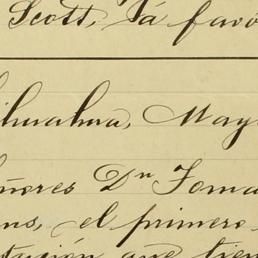 Scott, Ja favo
ihuahua, May
ñores Dn Toma
ns, el primero
titución que tien